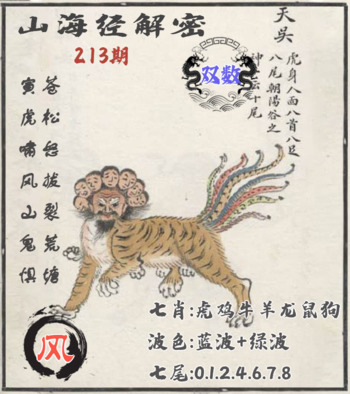 山海经解密
213期
双数
天吴
虎身人面八首八足
八尾朝阳谷之
神云十尾
苍松怒拔裂荒塘
寅虎啸风山鬼惧
七肖:虎鸡牛羊龙鼠狗
波色:蓝波+绿波
七尾:0.1.2.4.6.7.8
风